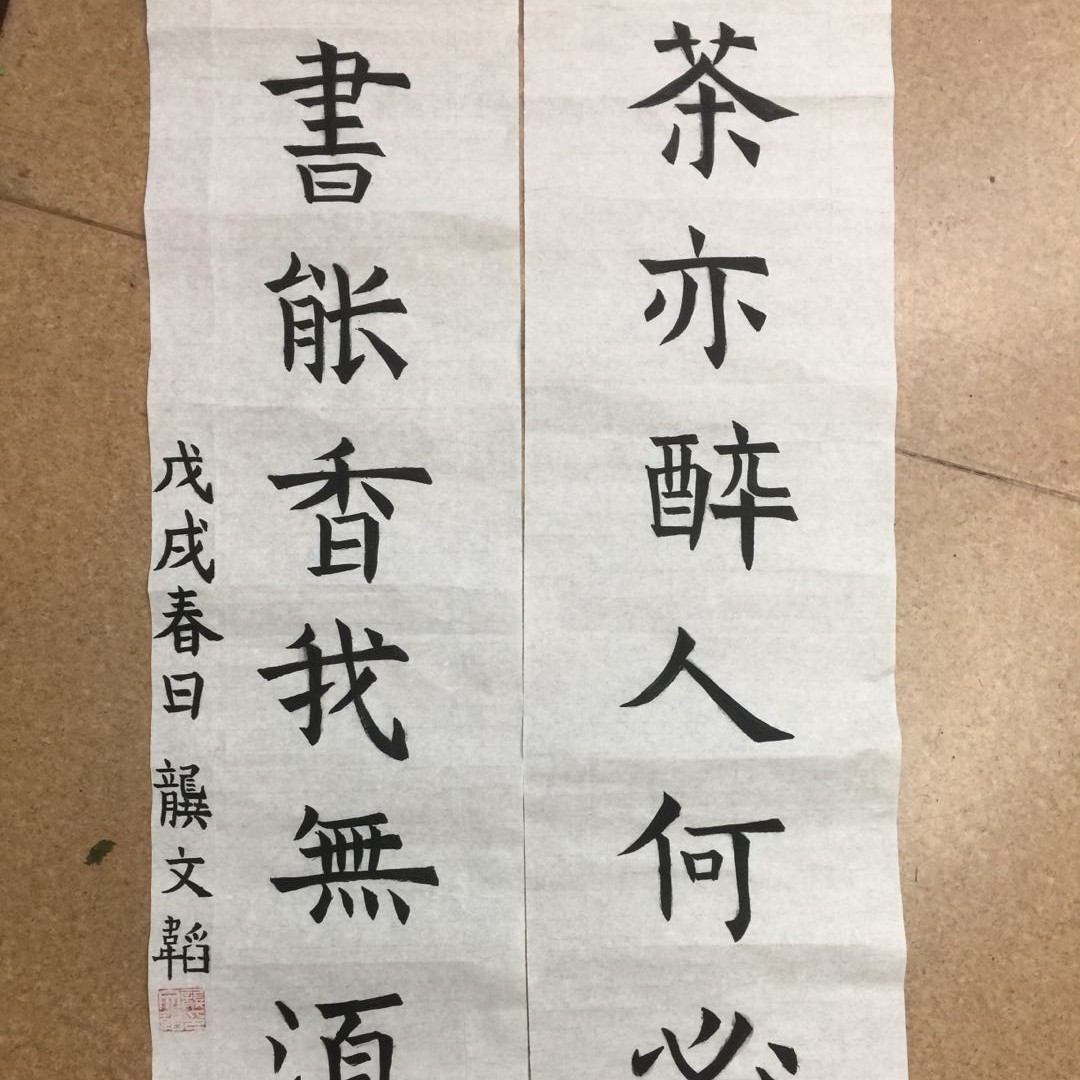 茶亦醉人何必
書能香我無須
戊戌春日 龔文韜